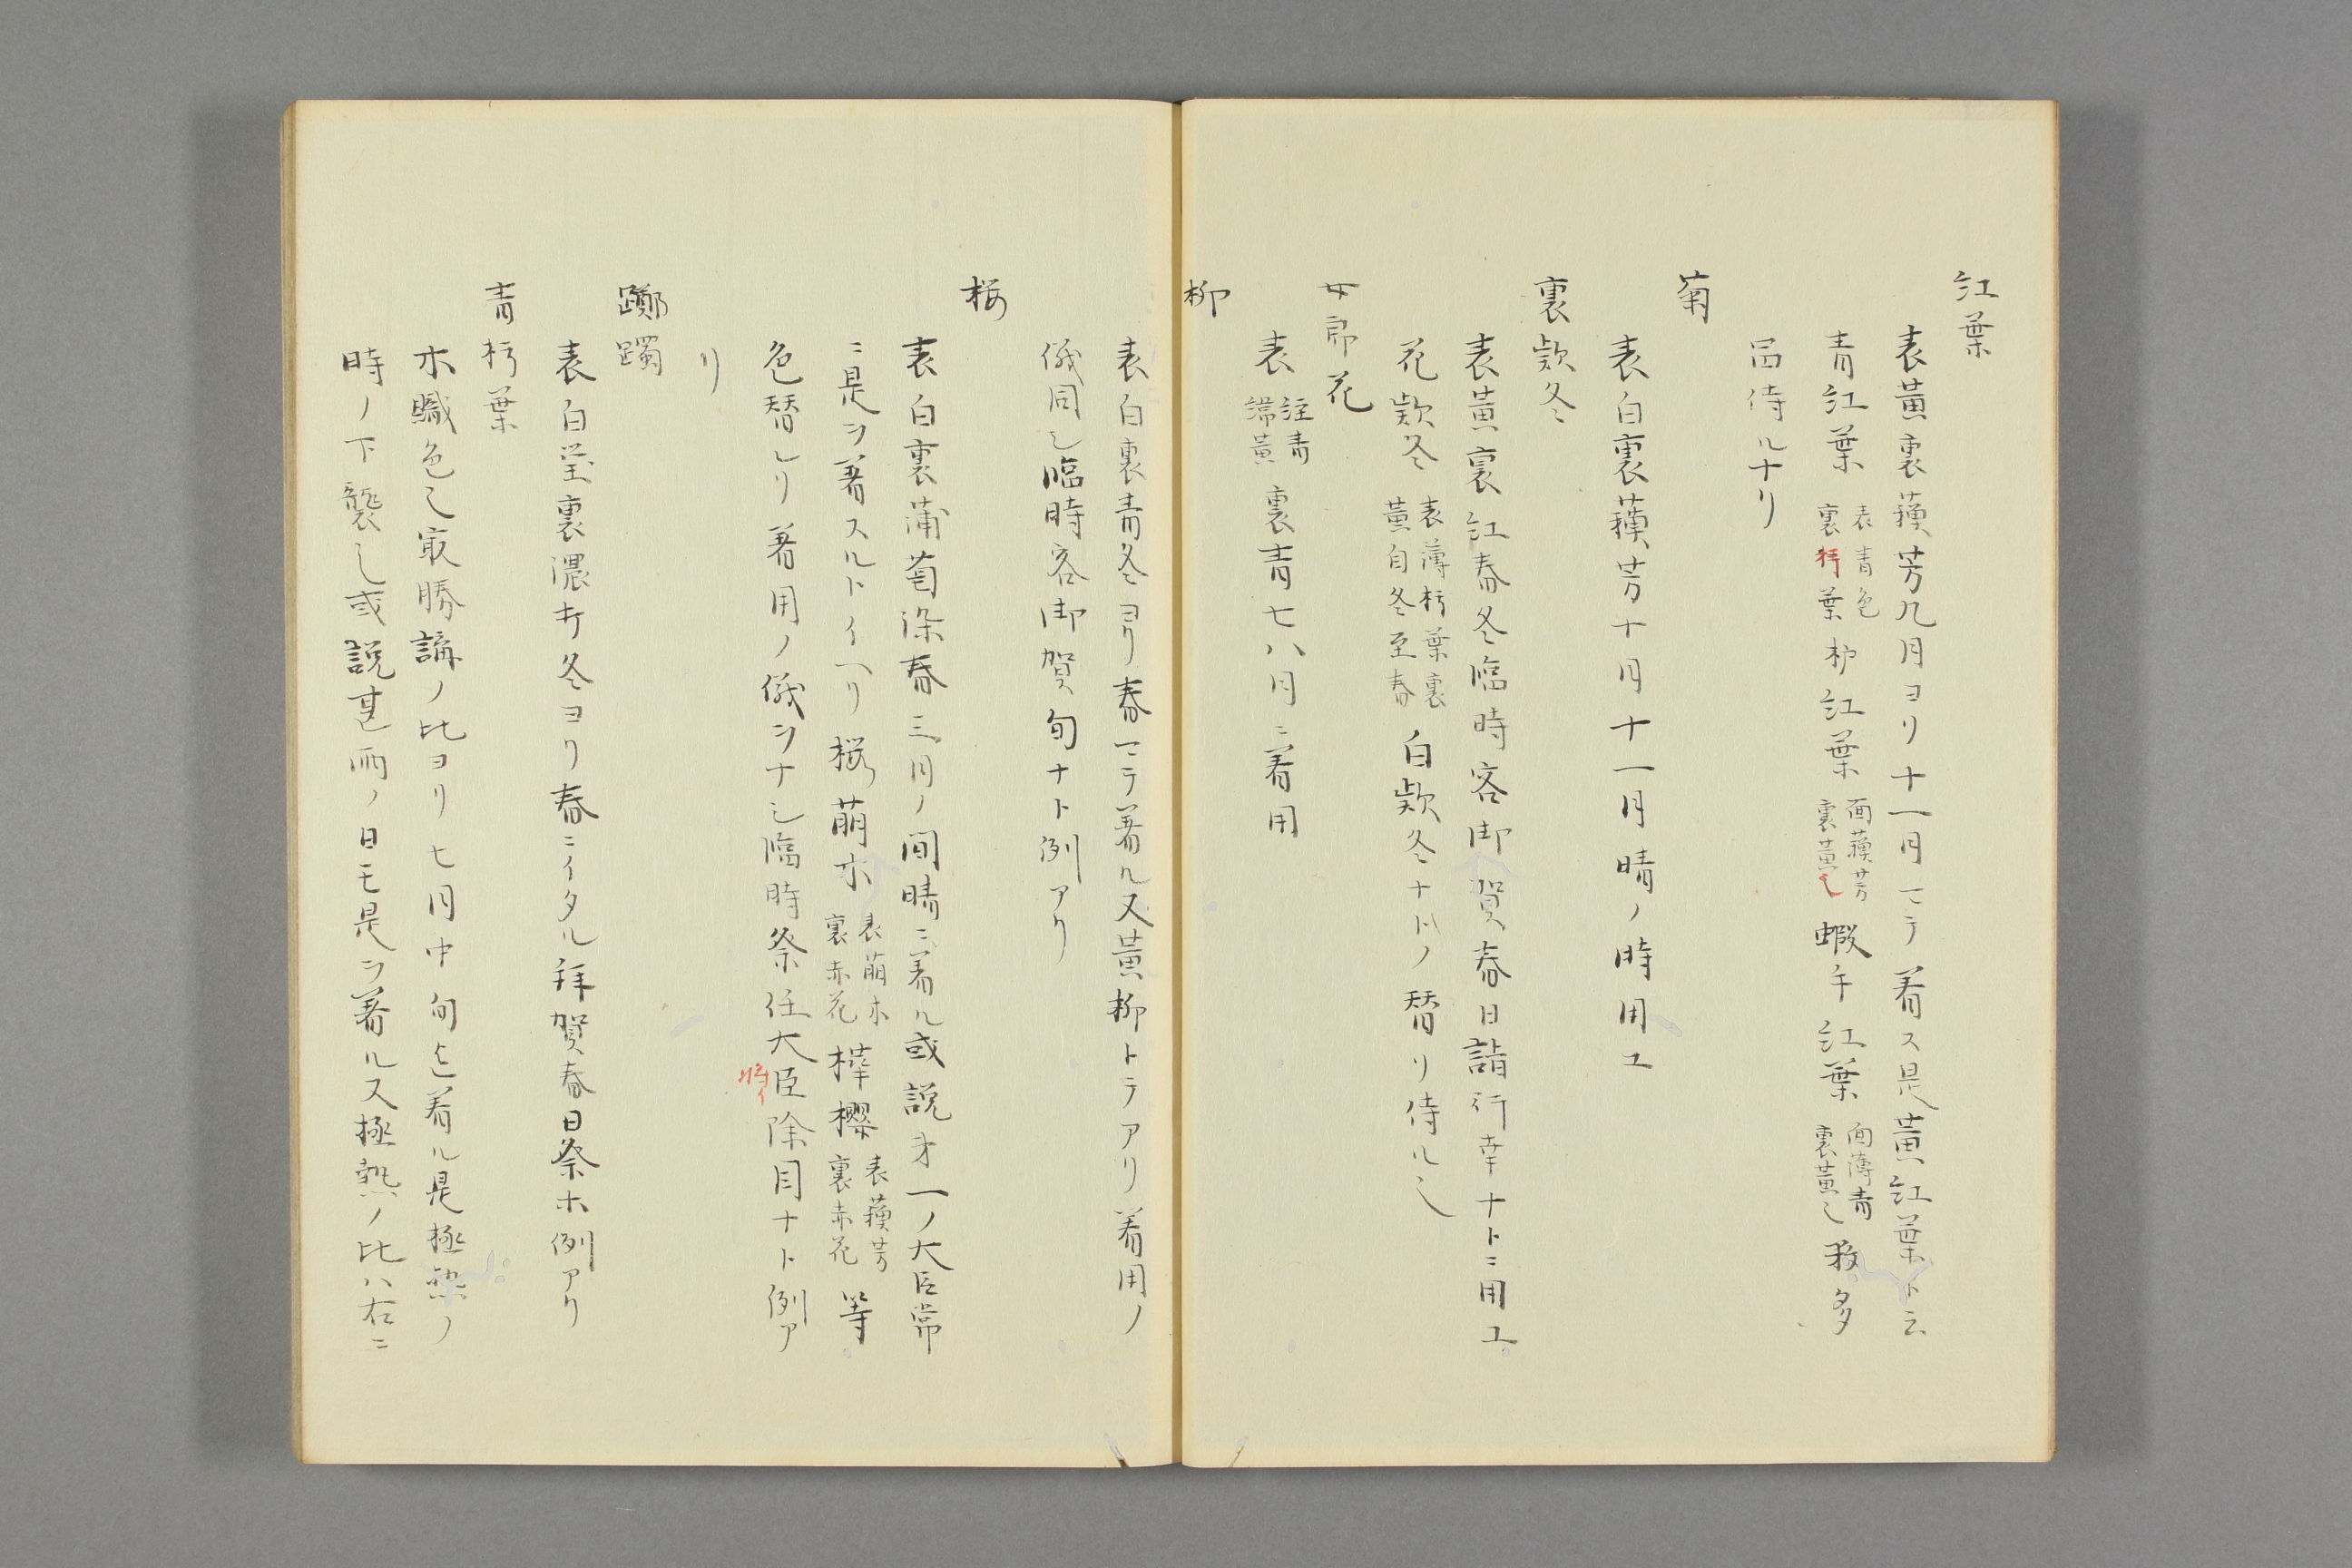 紅葉
表黄裏蘓芳九月ヨリ十一月ニテ着ス是黄紅葉ト云
青紅葉 表青色 裏朽葉 櫨紅葉 面蘓芳 裏黄也 蝦手紅葉 面薄青 裏黄也 数多
侍ルナリ
菊
表白裏蘓芳十月十一月晴ノ時用ユ
裏欵冬
表黄裏紅春冬臨時客御賀春日詣行幸ナトニ用ユ
花欵冬 表薄朽葉裏 黄自冬至春 白欵冬ナトノ替リ侍ル也
女郎花
表 経青 緯黄 裏青七八月ニ着用
柳
表白裏青冬ヨリ春マテ着ル又黄柳トテアリ着用ノ
儀同也臨時客御賀旬ナト例アリ
桜
表白裏蒲萄染春三月ノ間晴ニ着ル或説才一ノ大臣常
ニ是ヲ着スルトイヘリ桜萠木 表萠木 裏赤花 樺櫻 表蘓芳 裏赤花 等
色替レリ着用ノ儀ヲナシ臨時祭任大臣除目ナト例ア
将イ
リ
躑躅
表白瑩裏濃キ冬ヨリ春ニイタル拝賀春日祭ホ例アリ
青朽葉
ホ織色也最勝講ノ比ヨリ七月中旬迠着ル是極熱ノ
時ノ下襲也或説甚雨ノ日モ是ヲ着ル又極熱ノ比ハ右ニ